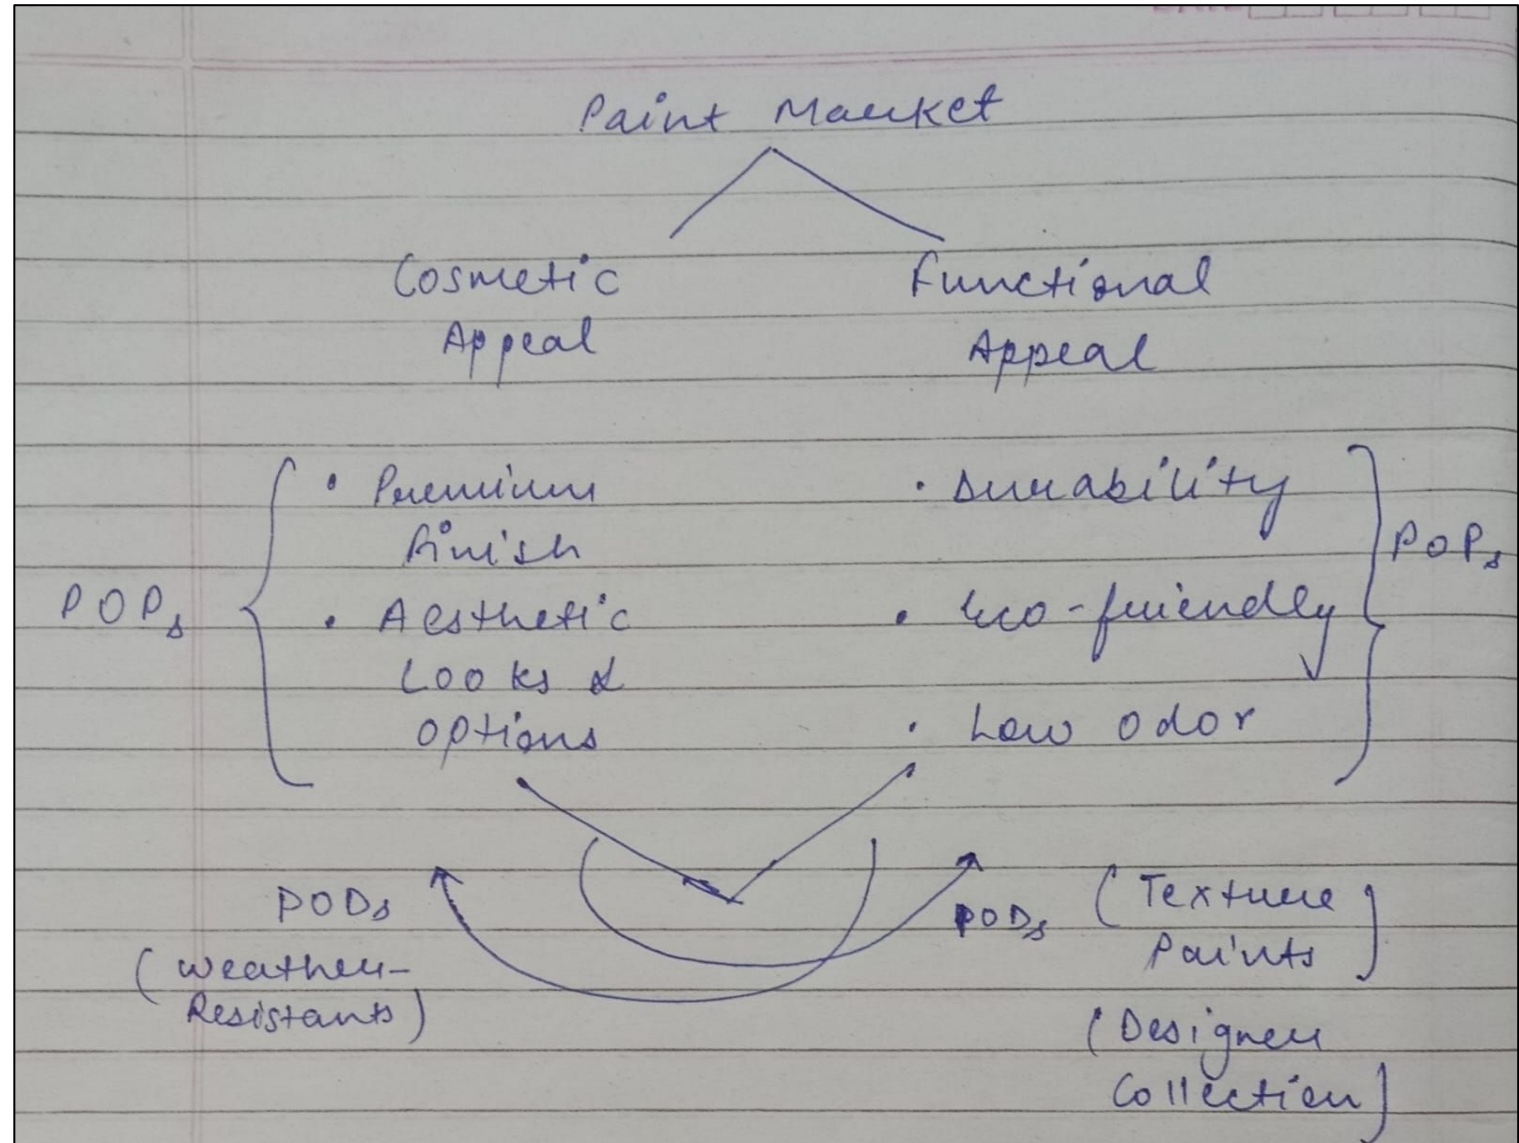 Paint Market
Cosmetic
Appeal
Functional
Appeal
POPs
• Premium
finish
• Aesthetic
Looks &
options
• Durability
• Eco-friendly
• Low odor
POPs
PODs
(Weather-
Resistants)
PODs
(Texture
Paints)
(Designer
Collection)